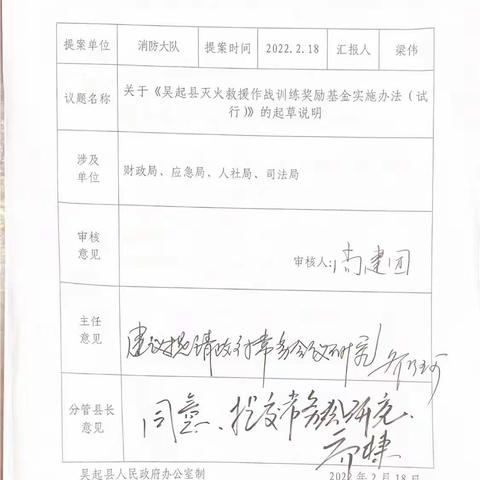 提案单位 消防大队 提案时间 2022.2.18 汇报人 梁伟
议题名称 关于《吴起县灭火救援作战训练奖励基金实施办法（试
行）》的起草说明
涉及
单位 财政局、应急局、人社局、司法局
审核
意见 审核人：尚建团
主任
意见 建议提请政府常务会议研究
分管县长
意见 同意、提交常务会研究、
吴起县人民政府办公室制 2022年2月18日